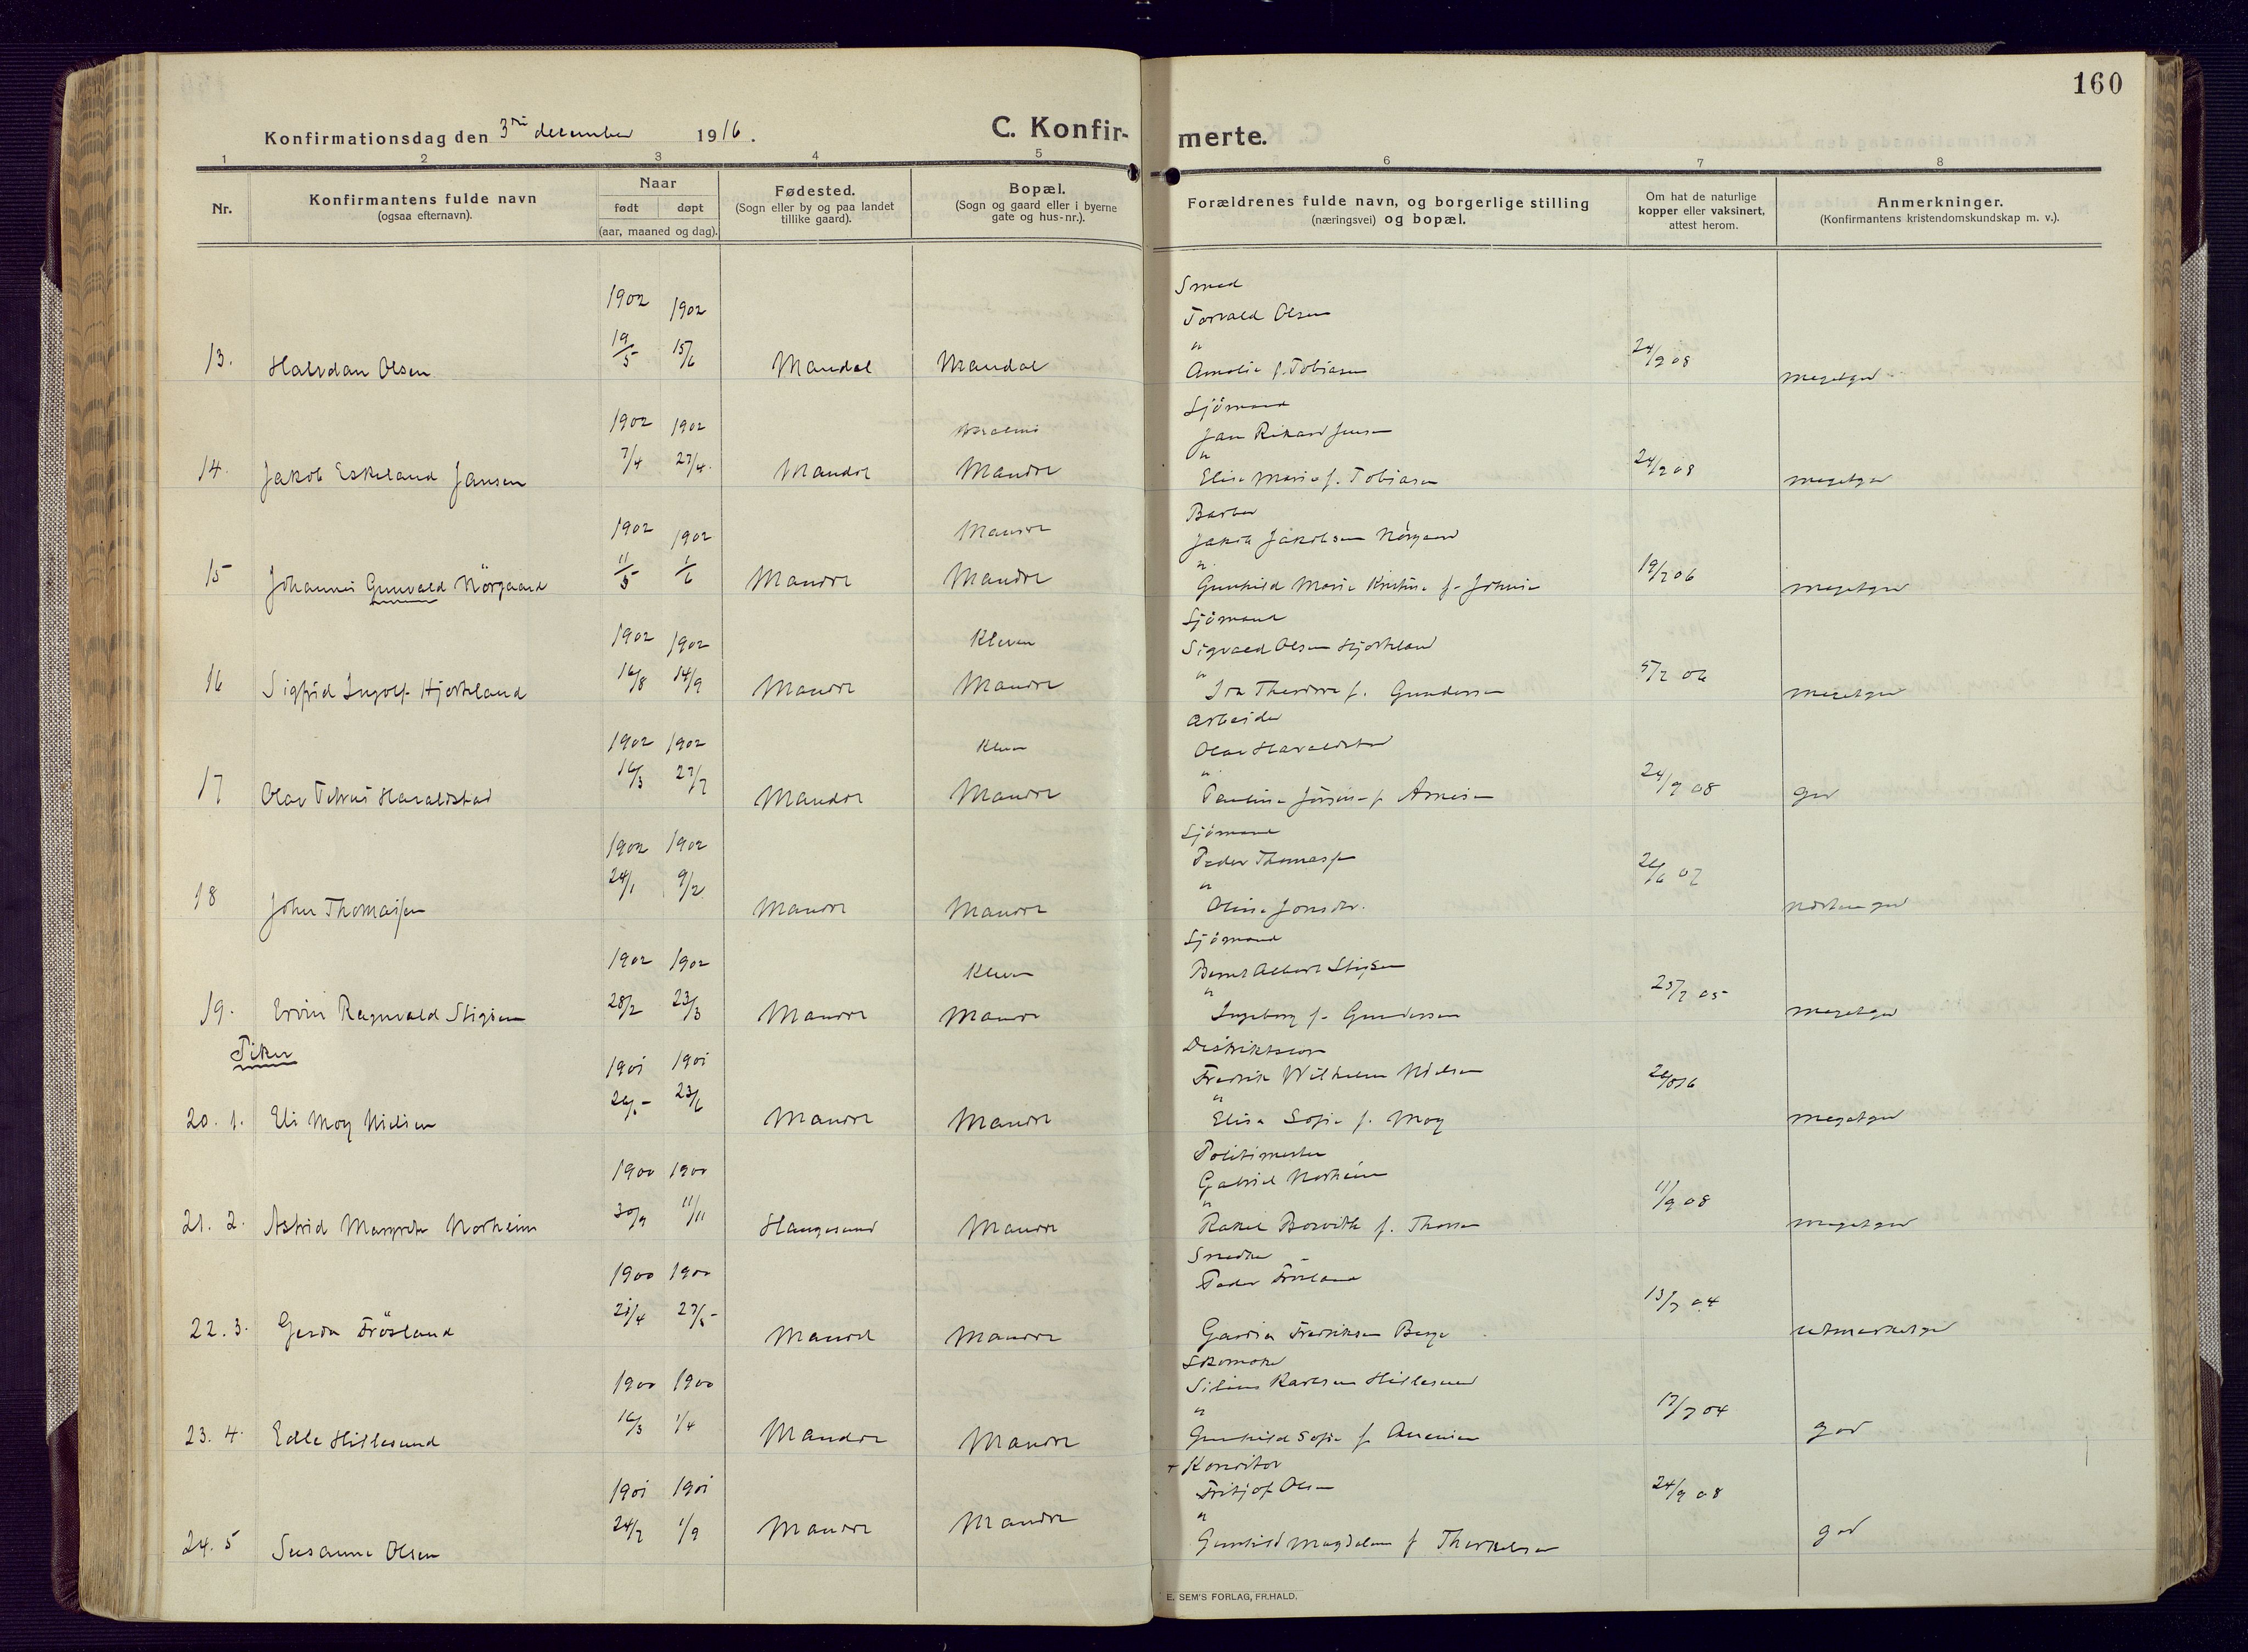 160
Konfirmationsdag den 3die december 1916.
C. Konfir- merte.
1 2 3 4 5 6 7 8
Nr.
Konfirmantens fulde navn
(ogsaa efternavn).
Naar
født døpt
(aar, maaned og dag).
Fødested.
(Sogn eller by og paa landet
tillike gaard).
Bopæl.
(Sogn og gaard eller i byerne
gate og hus-nr.).
Forældrenes fulde navn, og borgerlige stilling
(næringsvei) og bopæl.
Om hat de naturlige
kopper eller vaksinert,
attest herom.
Anmerkninger.
(Konfirmantens kristendomskundskap m. v.).
Smed
1902 1902 Torvald Olsen
19/5 15/6 "
13. Halvdan Olsen Mandal Mandal Amalie f. Tobiasen 24/9 08 megetgod
Sjömand
1902 1902 Jan Rikard Jensen
7/4 27/4 "
14. Jakob Eskeland Jansen Mandal Mandal Elise Marie f. Tobiasen 24/9 08 megetgod
Barber
1902 1902 Mandal Jakob Jakobsen Nörgaard
11/5 1/6 "
15 Johannes Gunvald Nörgaard Mandal Mandal Gunhild Marie Kristine f. 19/7 06 megetgod
Sjömand
1902 1902 Kleven Sigvald Olsen Hjorteland
16/8 14/9 "
16 Sigfrid Ingolf Hjorteland Mandal Mandal Ida Theodora f. Gundersen 5/7 06 megetgod
Arbeider
1902 1902 Kleven Olav Haraldstad
16/3 27/7 "
17 Olav Petrus Haraldstad Mandal Mandal Pauline f. Arnesen 24/9 08 god
Sjömand
1902 1902 Peder Thomassen
24/1 9/2 "
18 John Thomassen Mandal Mandal Oline Jonsdtr. 26/6 07 næsten god
Sjömand
1902 1902 Kleven Bernt Albert Stigsen
28/2 23/3 "
19. Ervin Ragnvald Stigsen Mandal Mandal Ingeborg f. Gundersen 25/7 05 megetgod
Piker
Distriktslæge
1901 1901 Fredrik Wilhelm Nielsen
23/6 "
20. 1. Eli Moy Nielsen Mandal Mandal Elisa Sofie f. Moy megetgod
Politimester
1900 1900 Gabriel Norheim
30/9 11/11 "
21. 2. Astrid Margrete Norheim Haugesund Mandal Rakel Borvitk f. 11/9 08 megetgod
Snedker
1900 1900 Peder Frösland
21/4 27/5
22. 3. Gerda Frösland Mandal Mandal Gardia Fredriksen Berge 13/7 04 utmerketgod
Skomaker
1900 1900 Silius Karlsen Hillesund
16/3 1/4 "
23. 4. Edle Hillesund Mandal Mandal Gunhild Sofie f. 17/7 04 god
+ Konditor
1901 1901 Fritjof Olsen
24/7 1/9 "
24. 5 Susanne Olsen Mandal Mandal Gunhild Magdalene f. Therkelsen 24/9 08 god
E. SEM'S FORLAG, FR.HALD.